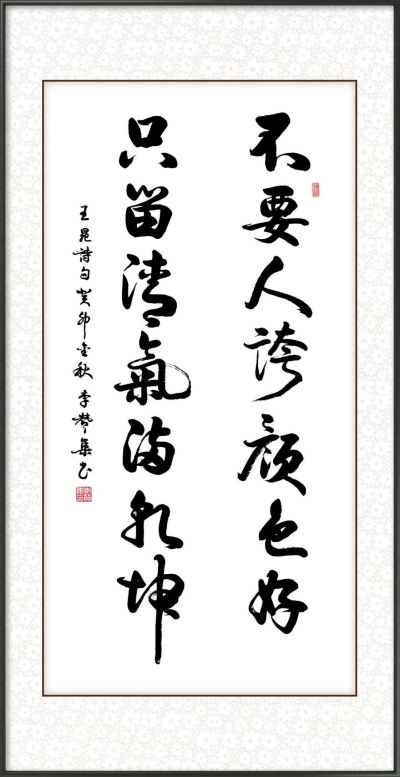 不要人誇顏色好
只留清氣滿乾坤
王冕詩句癸卯金秋李集書